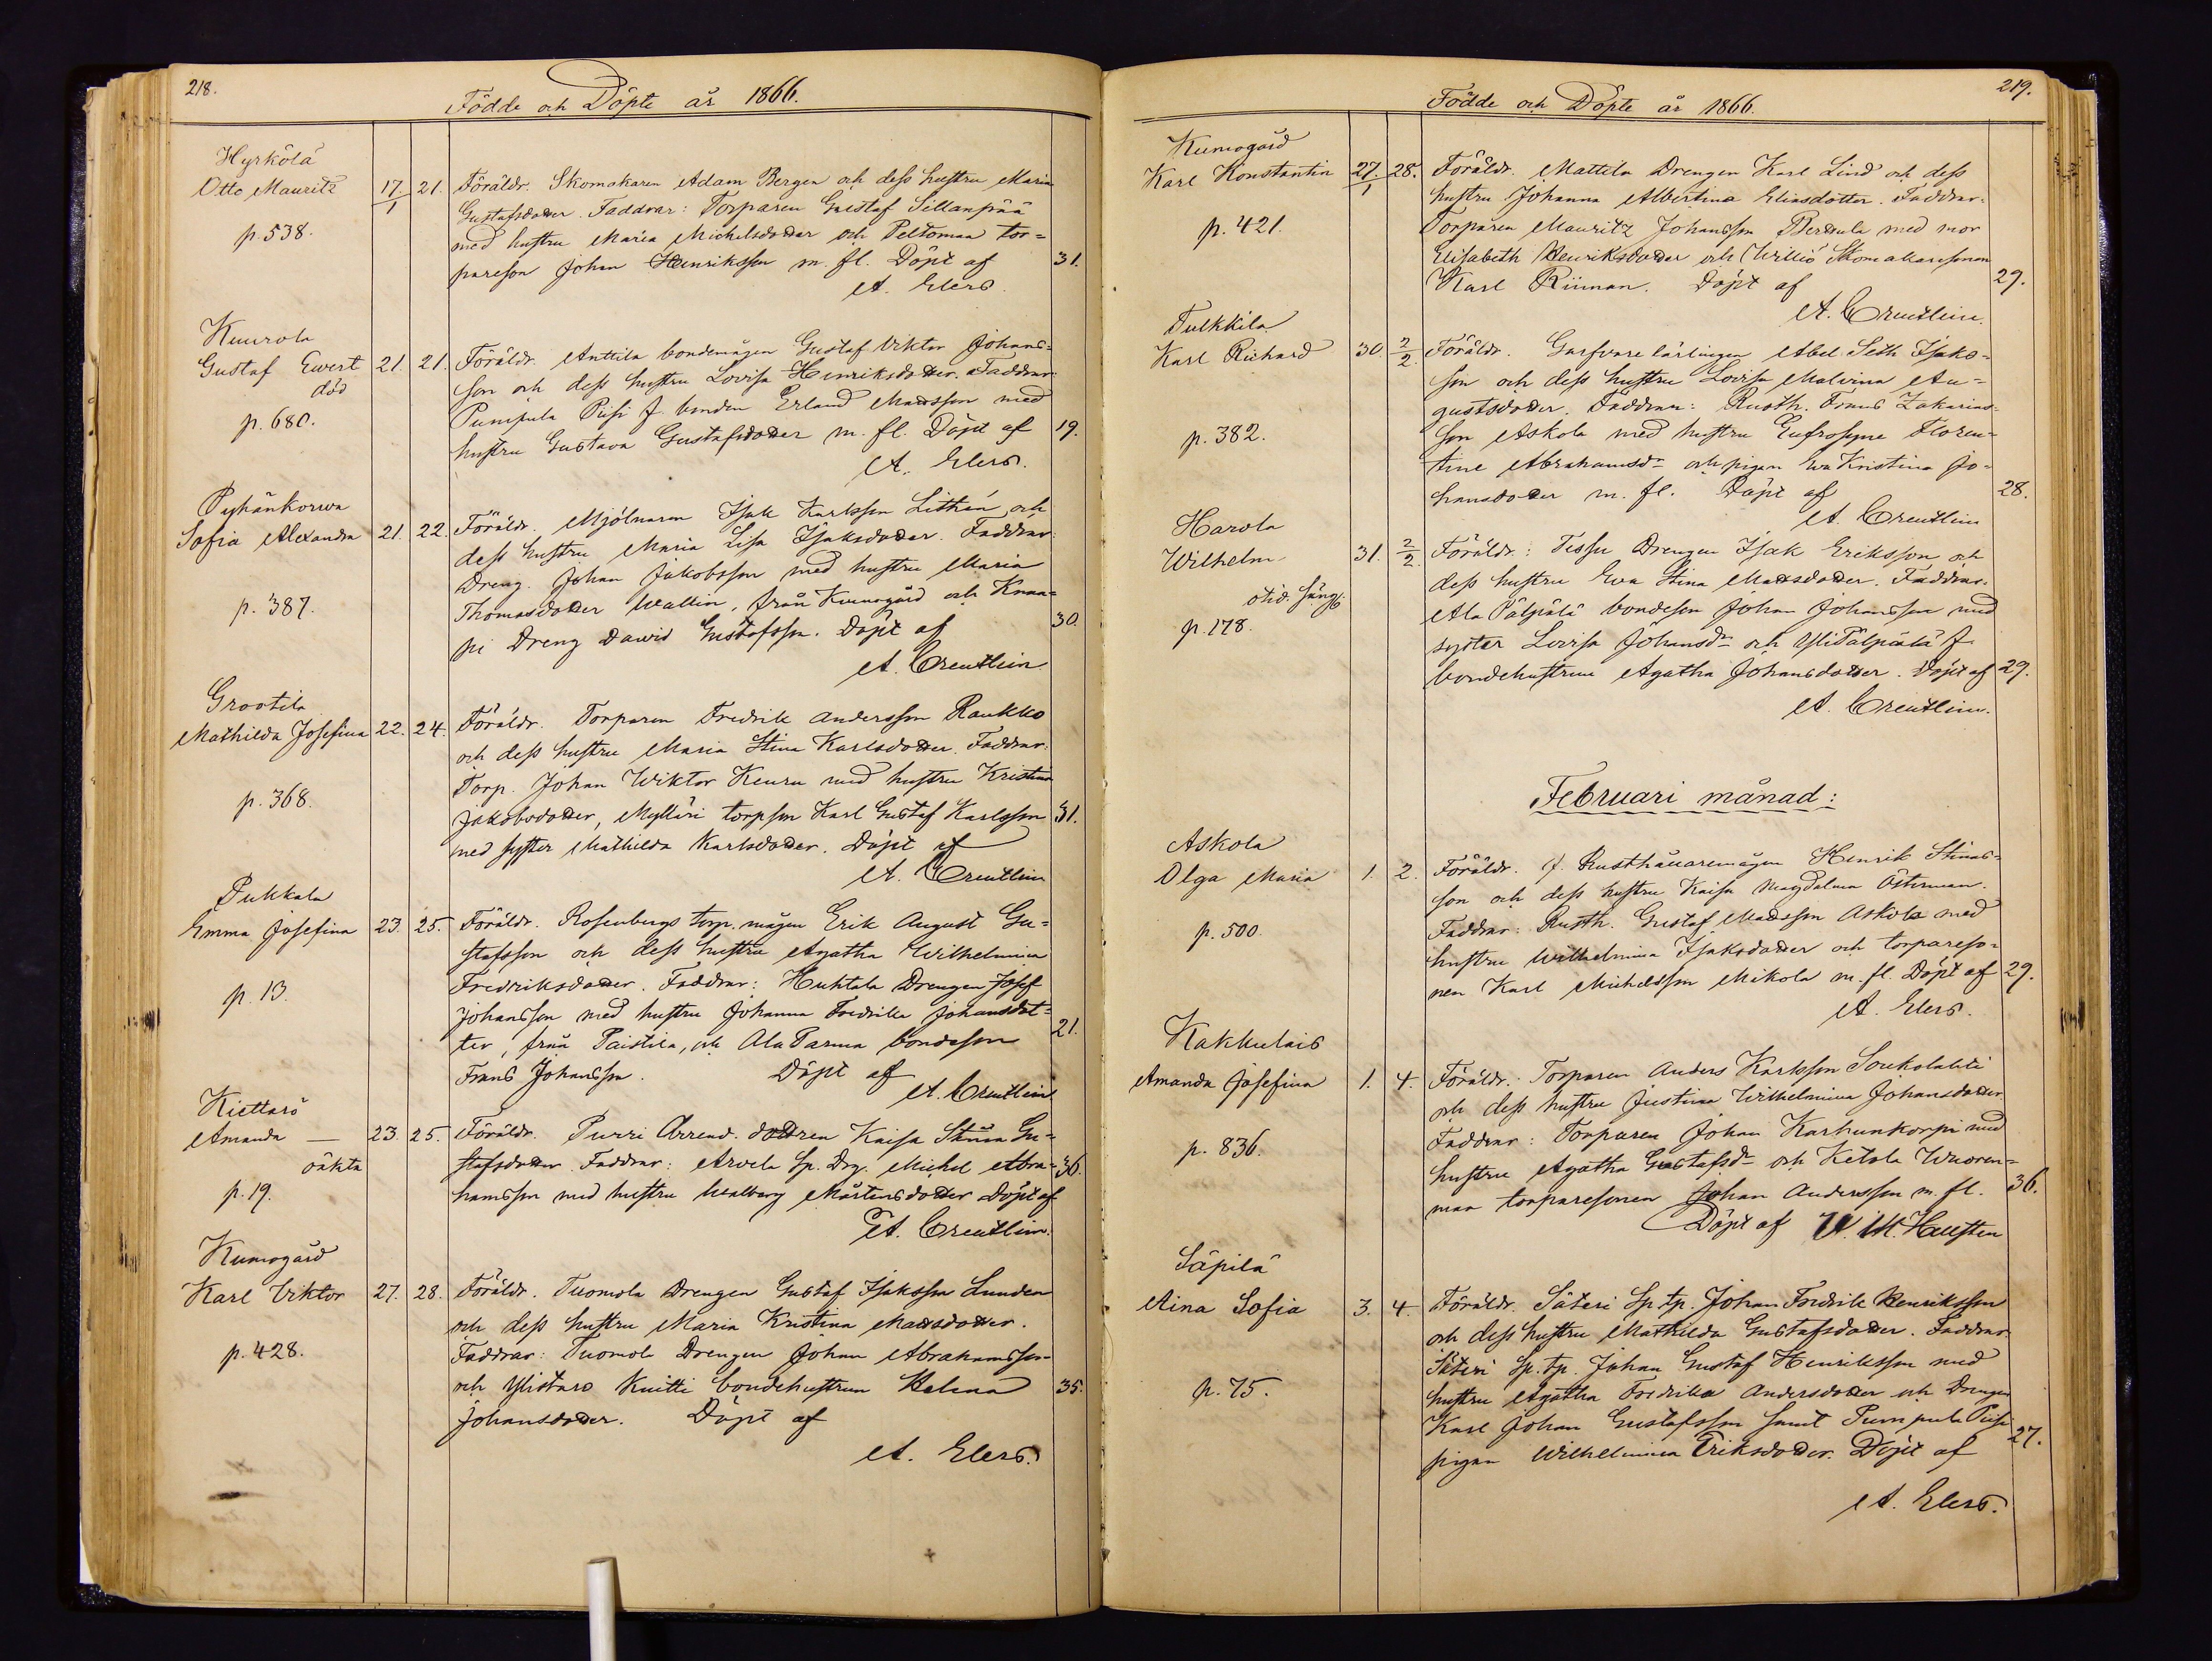 218.
Födde och Döpte år 1866.
Hyrkölä
Otto Mauritz 17/1 21. Föräldr. Skomakaren Adam Bergen och dess hustru Maria
Gustafsdotter. Faddrar: Torparen Gustaf Sillanpää
p. 538. med hustru Maria Michelsdotter och Peltomaa tor=
pareson Johan Henriksson m. fl. Döpt af 31.
A. Elers.
Kuurola
Gustaf Ewert 21. 21. Föräldr. Anttila bondemågen Gustaf Viktor Johans=
död son och dess hustru Lovisa Henriksdotter. Faddrar:
p. 680. Pumpula Piisi f. bonden Erland Matsson med
hustru Gustava Gustafsdotter m. fl. Döpt af 19.
A. Elers.
Pyhänkorva
Sofia Alexandra 21. 22. Föräldr. Mjölnaren Isak Karlsson Lithén och
dess hustru Maria Lisa Isaksdotter. Faddrar:
Dreng. Johan Jakobsson med hustru Maria
p. 387. Thomasdotter Wallin, från Kumogård och Knaa=
pi Dreng Dawid Gustafsson. Döpt af 30.
A. Creutlein
Grootila
Mathilda Josefina 22. 24. Föräldr. Torparen Fredrik Andersson Raukko
och dess hustru Maria Stina Karlsdotter. Faddrar:
Torp. Johan Wiktor Keuru med hustru Kristina
p. 368. Jakobsdotter, Mylläri torpson Karl Gustaf Karlsson 31.
med syster Mathilda Karlsdotter. Döpt af
A. Creutlein
Pukkala
Emma Josefina 23. 25. Föräldr. Rosenbergs torp. mågen Erik August Gu=
stafsson och dess hustru Agatha Wilhelmina
p. 13. Fredriksdotter. Faddrar: Huhtala Drengen Josef
Johansson med hustru Johanna Fredrika Johansdot=
ter, från Paistila, och Ala Parma bondeson 21.
Frans Johansson. Döpt af
A. Creutlein
Kiettarö
Amanda — 23. 25. Föräldr. Purri Arrend. dottren Kaisa Stiina Gu=
oäkta stafsdotter. Faddrar: Arvela Sp. Drg. Michel Abra= 36.
p. 19. hamsson med hustru Walborg Mårtensdotter Döpt af
A. Creutlein.
Kumogård
Karl Viktor 27. 28. Föräldr. Tuomola Drengen Gustaf Isaksson Lunden
och dess hustru Maria Kristina Matsdotter.
p. 428. Faddrar: Tuomola Drengen Johan Abrahamsson
och Ylistaro Knitti bondehustrun Helena 35.
Johansdotter. Döpt af
A. Elers.
219.
Födde och Döpte år 1866.
Kumogård
Karl Konstantin 27./1 28. Föräldr. Mattila Drengen Karl Lind och dess
hustru Johanna Albertina Eliasdotter. Faddrar:
p. 421. Torparen Mauritz Johansson Perttula med mor
Elisabeth Henriksdotter och Williö Skomakaresonen
Karl Riiman. Döpt af 29.
A. Creutlein.
Tulkkila
Karl Richard 30. 2/2. Föräldr. Garfvare lärlingen Abel Seth Isaks=
son och dess hustru Lovisa Malvina Au=
gustsdotter. Faddrar: Rusth. Frans Zakarias=
p. 382. son Askola med hustru Eufrosyne Floren=
tine Abrahamsdr och pigan Eva Kristina Jo=
hansdotter m. fl. Döpt af 28.
A. Creutlein
Harola
Wilhelm 31. 2/2. Föräldr: Tissu Drengen Isak Eriksson och
dess hustru Eva Stina Matsdotter. Faddrar:
otid. säng. Ala Pälpälä bondeson Johan Johansson med
p. 178. syster Lovisa Johansdr och Yli Pälpälä f.
bondehustrun Agatha Johansdotter. Döpt af 29.
A. Creutlein.
Februari månad:
Askola
Olga Maria 1. 2. Föräldr. f. Rusthållaremågen Henrik Stinas=
son och dess hustru Kaisa Magdalena Österman.
p. 500. Faddrar: Rusth. Gustaf Matsson Askola med
hustru Wilhelmina Isaksdotter och torpareso=
nen Karl Michelsson Mikola m. fl. Döpt af 29.
A. Elers.
Kakkulais
Amanda Josefina 1. 4. Föräldr. Torparen Anders Karlsson Soukolahti
och dess hustru Justina Wilhelmina Johansdotter
Faddrar: Torparen Johan Karhunkorpi med
p. 836. hustru Agatha Gustafsdr och Ketola Wuoren=
maa torparesonen Johan Andersson m. fl. 36.
Döpt af K. M. Hausten
Säpilä
Aina Sofia 3. 4. Föräldr. Säteri Sp. tp. Johan Fredrik Henriksson
och dess hustru Mathilda Gustafsdotter. Faddrar:
Säteri Sp. tp. Johan Gustaf Henriksson med
p. 75. hustru Agatha Fredrika Andersdotter och Drengen
Karl Johan Gustafsson samt Pumpula Piisi
pigan Wilhelmina Eriksdotter. Döpt af 27.
A. Elers.